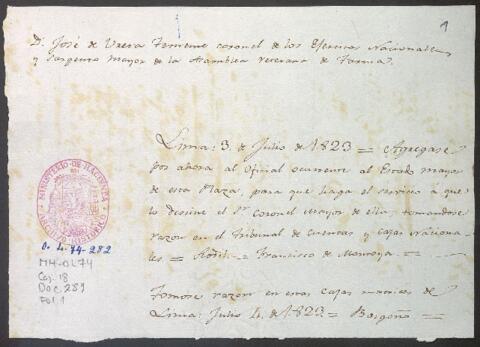 1
D. José de Urera Teniente coronel de los Exercitos Nacionales,
y Sargento mayor de la Asamblea Veterana de Tarma.
Lima: 3 de Julio de 1823 = Agregase
por ahora al oficial ocurrente al Estado mayor
de esta Plaza, para que haga el servicio á que
lo destine el Sr. Coronel Mayor de ella, tomandose
razon en el Tribunal de Cuentas y cajas Naciona-
les = Rodil = Francisco de Montoya =
Tomose razon en estas cajas matrices de
Lima: Julio 4. de 1823 =
MINISTERIO DE HACIENDA
O.L. 74-282
MH-OL 74
Caj. 18
Doc. 289
Fol. 1